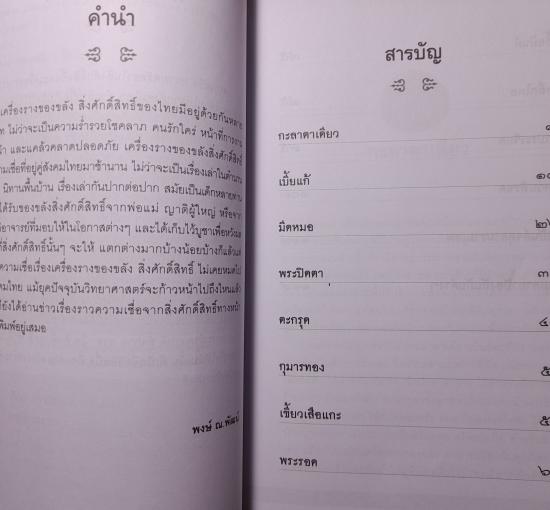 คำนำ
เครื่องรางของขลัง สิ่งศักดิ์สิทธิ์ของไทยมีอยู่ด้วยกันหลาย
ไม่ว่าจะเป็นความร่ำรวยโชคลาภ คนรักใคร่ หน้าที่การงาน
และแคล้วคลาดปลอดภัย เครื่องรางของขลังสิ่งศักดิ์สิทธิ์
ามเชื่อที่อยู่คู่สังคมไทยมาช้านาน ไม่ว่าจะเป็นเรื่องเล่าในตำนาน
นิทานพื้นบ้าน เรื่องเล่ากันปากต่อปาก สมัยเป็นเด็กหลายท่าน
ได้รับของขลังสิ่งศักดิ์สิทธิ์จากพ่อแม่ ญาติผู้ใหญ่ หรือจาก
อาจารย์ที่มอบให้ในโอกาสต่างๆ และได้เก็บไว้บูชาเพื่อหวังผล
ที่สิ่งศักดิ์สิทธิ์นั้นๆ จะให้ แตกต่างมากบ้างน้อยบ้างก็แล้วแต่
ความเชื่อเรื่องเครื่องรางของขลัง สิ่งศักดิ์สิทธิ์ ไม่เคยหมดไป
คมไทย แม้ยุคปัจจุบันวิทยาศาสตร์จะก้าวหน้าไปถึงไหนแล้ว
ยังได้อ่านข่าวเรื่องราวความเชื่อจากสิ่งศักดิ์สิทธิ์ทางหน้า
พิมพ์อยู่เสมอ
พงษ์ ณ.พัฒน์
สารบัญ
กะลาตาเดียว
เบี้ยแก้ ๑๐
มีดหมอ ๒๖
พระปิดตา ๓
ตะกรุด ๔
กุมารทอง ๕
เขี้ยวเสือแกะ ๕
พระรอด ๖